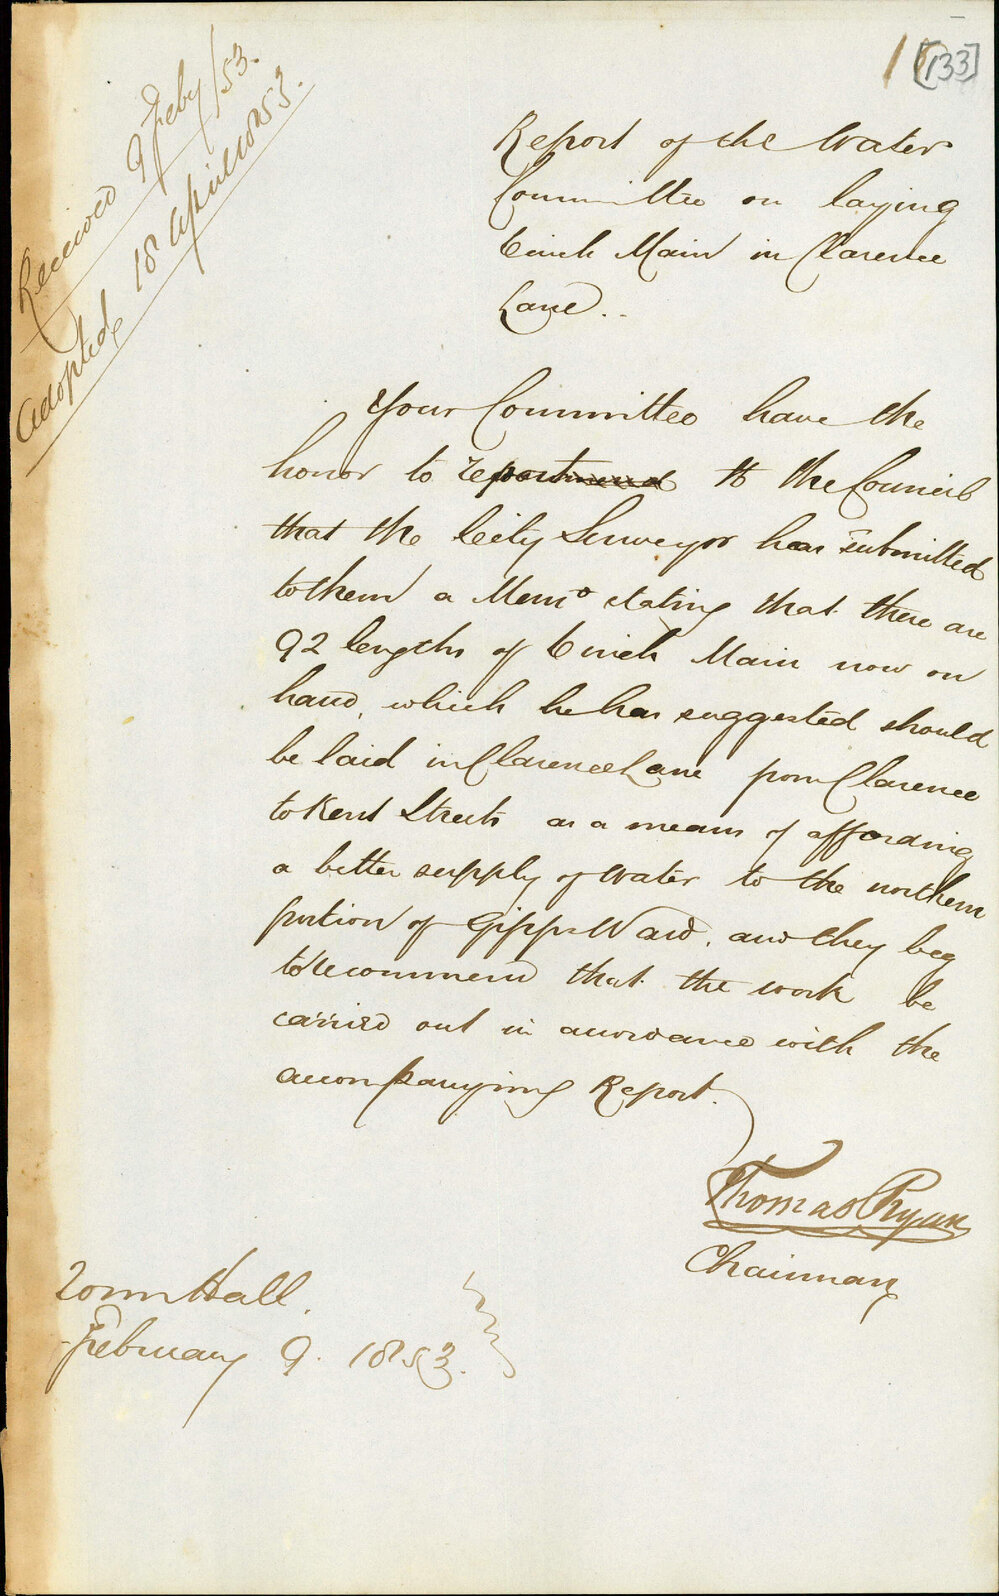 Received 9 Feby/53.
Adopted 18 April 1853.
[133]
Report of the Water
Committee on laying
6 inch Main in Clarence
Lane..
Your Committee have the
honor to report to the Council
that the City Surveyor has submitted
to them a Memo stating that there are
92 lengths of 6 inch Main now on
hand, which he has suggested should
be laid in Clarence Lane from Clarence
to Kent Streets as a means of affording
a better supply of Water to the northern
portion of Gipps Ward, and they beg
to recommend that the work be
carried out in accordance with the
accompanying Report.
Thomas Ryan
Chairman
Town Hall.
February 9. 1853.